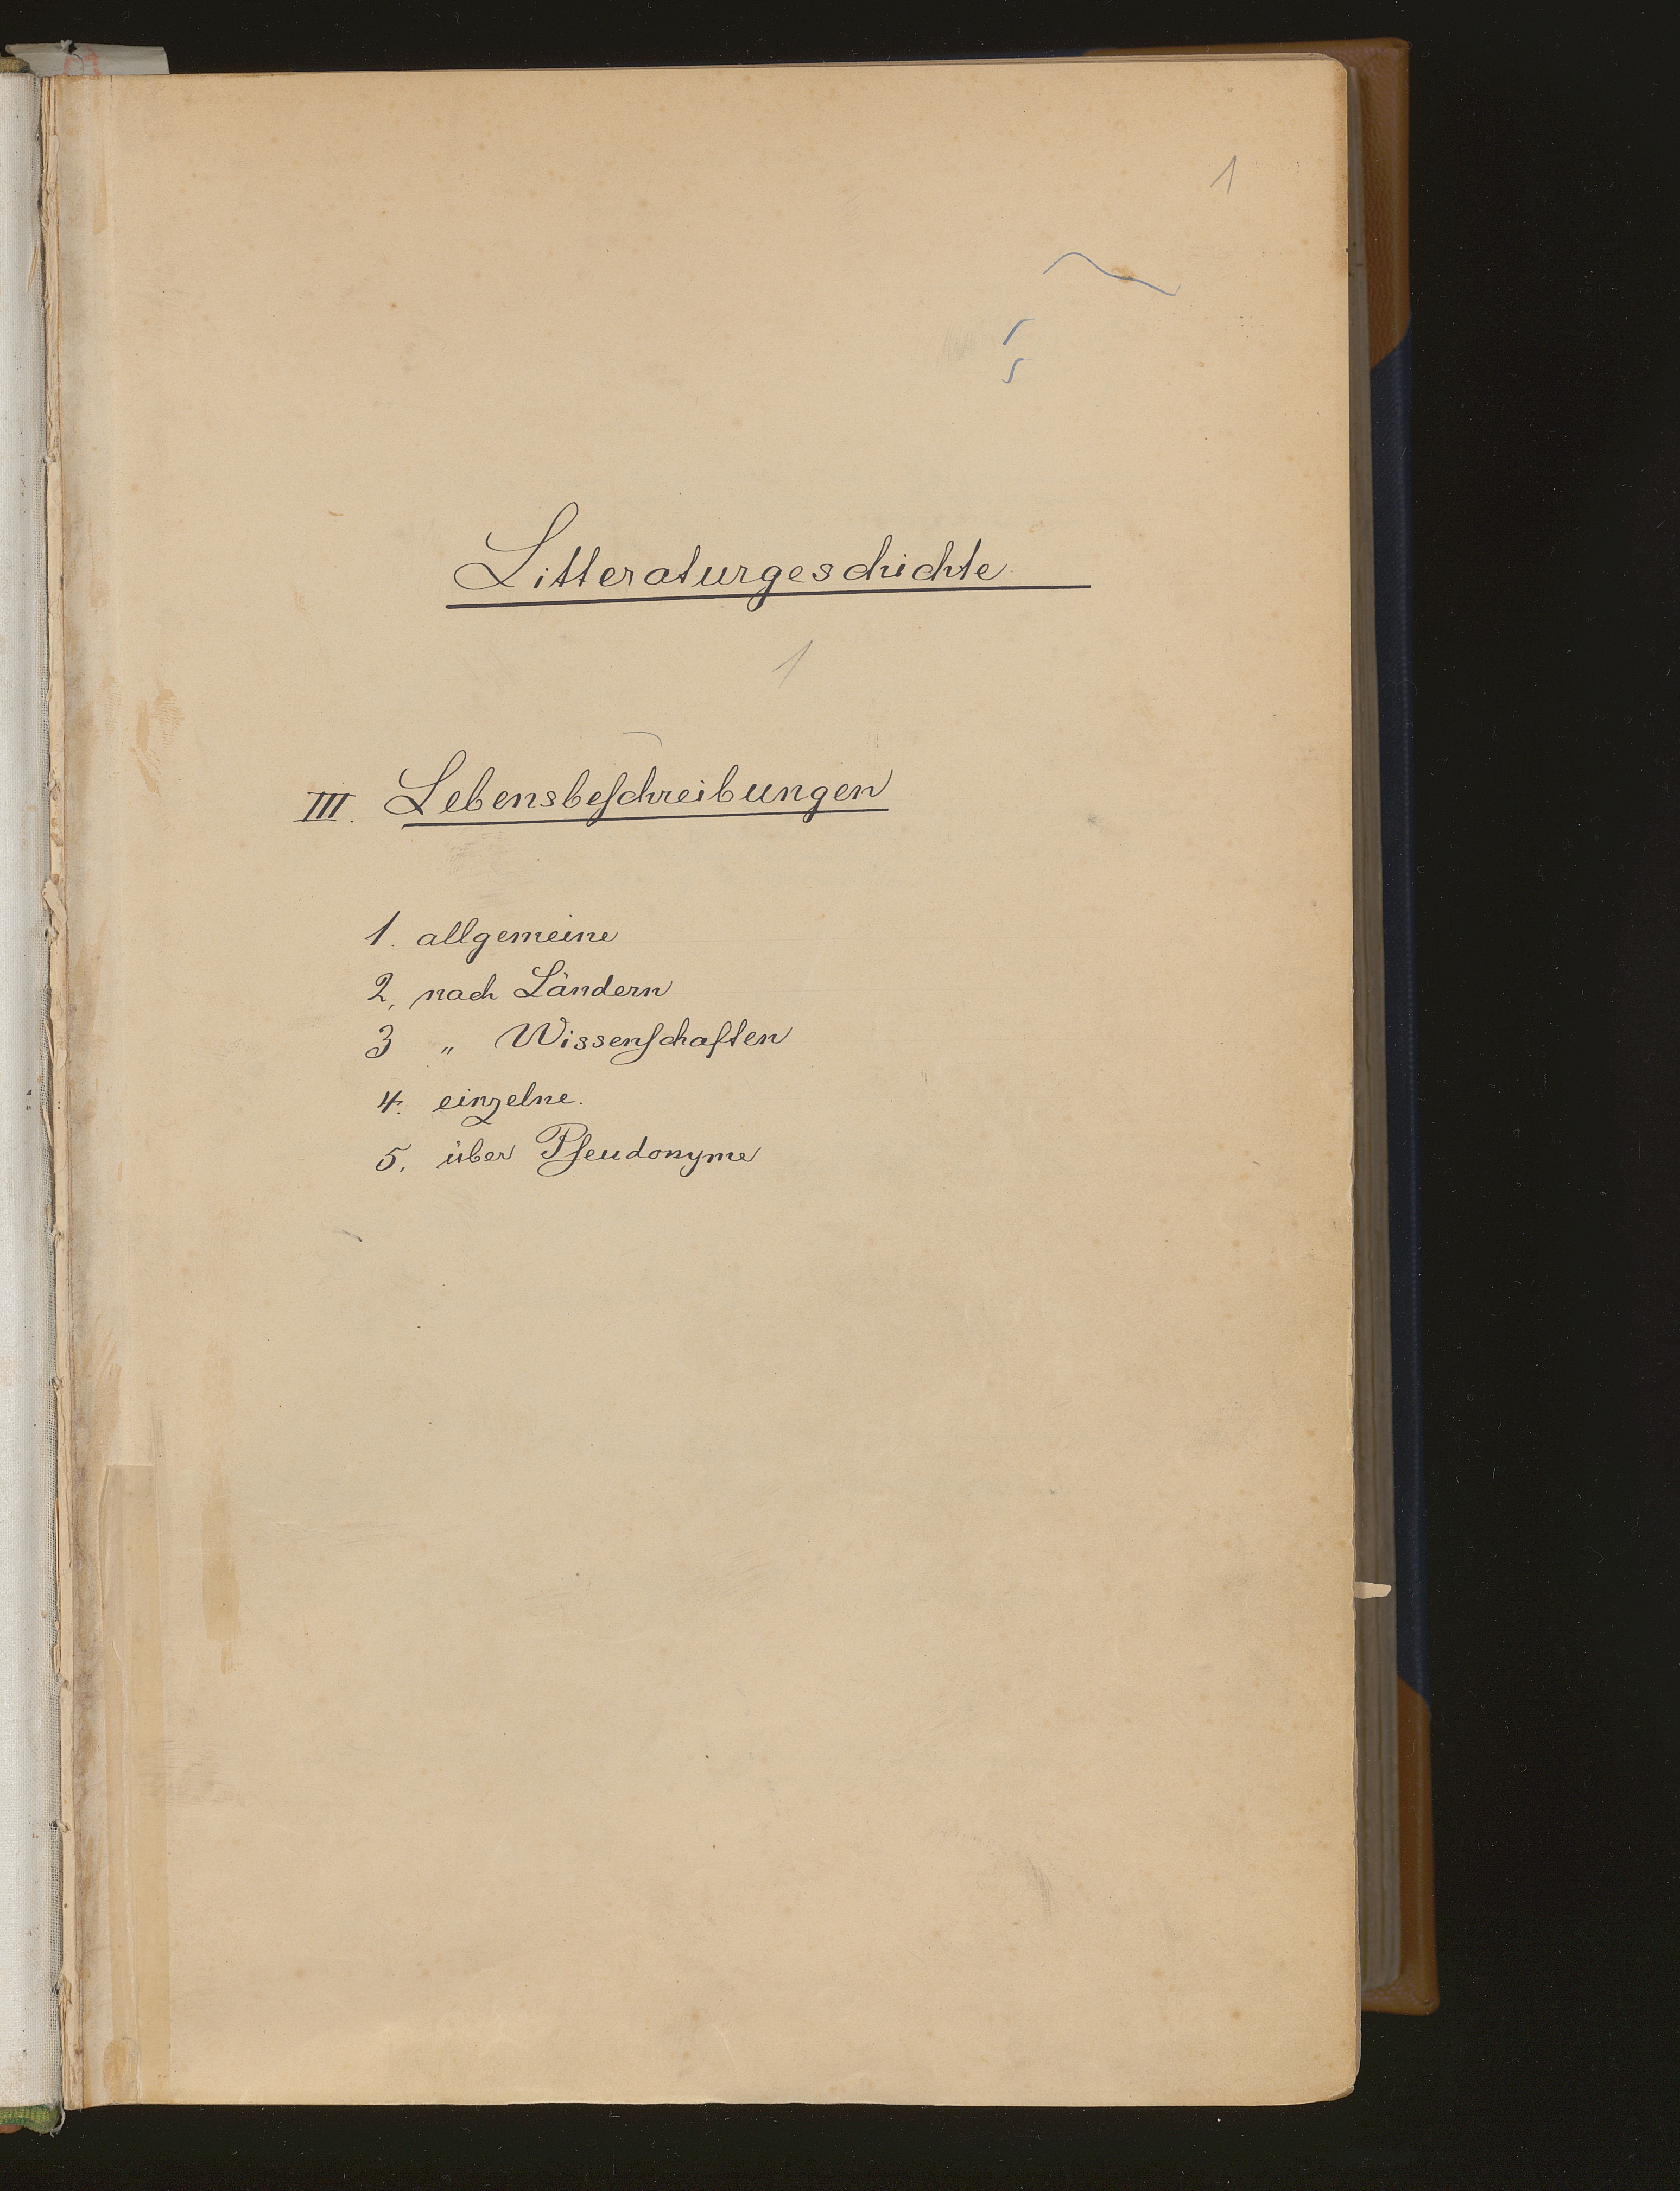 1
Litteraturgeschichte.
1
III. Lebensbeſchreibungen
1. allgemeine
2. nach Ländern
3 „ Wissenſchaften
4. einzelne.
5. über Pſeudonyme